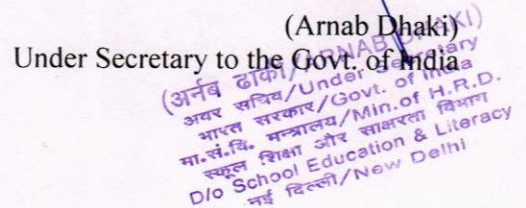 (Arnab Dhaki)
Under Secretary to the Govt. of India
(अर्नब ढाकी/ARNAB DHAKI)
अवर सचिव/Under Secretary
भारत सरकार/Govt. of India
मा.सं.वि. मन्त्रालय/Min.of H.R.D.
स्कूल शिक्षा और साक्षरता विभाग
D/o School Education & Literacy
नई दिल्ली/New Delhi